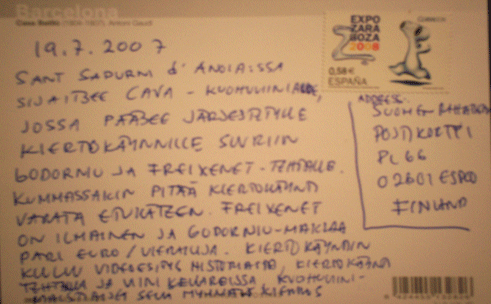 Barcelona
Casa Batlló (1904-1907). Antoni Gaudí
19.7.2007
SANT SADURNI d'ANOIASSA
SIJAITSEE CAVA - KUOHUVIINIALUE,
JOSSA PÄÄSEE JÄRJESTETYLLE
KIERTOKÄYNNILLE SUURIIN
GODORNIU JA FREIXENET - TEHTAILLE.
KUMMASSAKIN PITÄÄ KIERTOKÄYND
VARATA ETUKÄTEEN. FREIXENET
ON ILMAINEN JA GODORNIU MAKSAA
PARI EURO/VIERAILIJA. KIERTOKÄYNDIIN
KUULUU VIDEOESITYS HISTORIASTA, KIERTOKÄYND
JA VIINIKELLAREISSA KUOHUVIINI-
SEKÄ
EXPO
ZARA
BOZA
2008
CORREOS
0,58€
ESPAÑA
ADDRESS:
SUOMEN
POSTIKORTTI
PL 66
02601 ESPOO
FINLAND